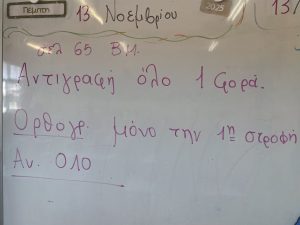 Πέμπτη 13 Νοεμβρίου 2025 13/
σελ 65 Β.Μ.
Αντιγραφή όλο 1 φορά.
Ορθογρ. μόνο την 1η στροφή
Αν. Ο10